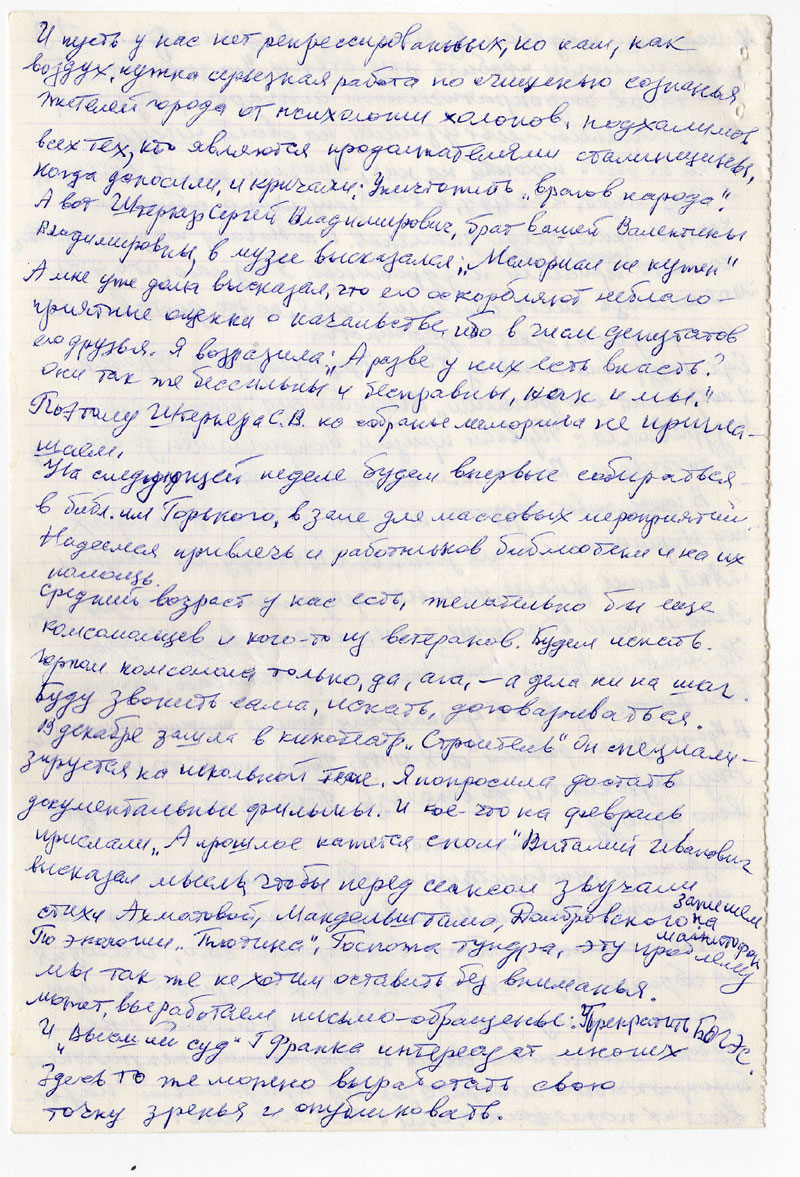 И пусть у нас нет репрессированных, но нам, как
воздух, нужна серьезная работа по очищенью сознанья
жителей города от психологии холопов, подхалимов
всех тех, кто являются продолжателями сталинщины,
когда доносили, и кричали: Уничтожить „врагов народа".
А вот Штернер Сергей Владимирович, брат вашей Валентины
Владимировны, в музее высказался: „Мемориал не нужен"
А мне уже дома высказал, что его оскорбляют неблаго-
приятные оценки о начальстве, ибо в числе депутатов
его друзья. Я возразила: „А разве у них есть власть?
Они так же бессильны и бесправны, как и мы."
Поэтому С.В. на собранье мемориала не пригла-
шаем.
На следующей неделе будем впервые собираться
в библ. им Горького, в зале для массовых мероприятий.
Надеемся привлечь и работников библиотеки и на их
помощь.
Средний возраст у нас есть, желательно бы еще
комсомольцев и кого-то из ветеранов. Будем искать.
Горком комсомола только, да, ага, — а дела ни на шаг.
Буду звонить сама, искать, договариваться.
В декабре зашла в кинотеатр „Строитель" Он специали-
зируется на школьной теме. Я попросила достать
документальные фильмы. И кое-что на февраль
прислали „А прошлое кажется сном" Виталий Иванович
высказал мысль, чтобы перед сеансом звучали
стихи Ахматовой, Мандельштама, Домбровского запишем на магнитофон
По экологии „Плотина", Госпожа тундра, эту проблему
мы так же не хотим оставить без вниманья.
Может, выработаем письмо-обращенье: „Прекратить БОГЭС.
И „Высший суд" Г Франка интересует многих
Здесь то же можно выработать свою
точку зренья и опубликовать.